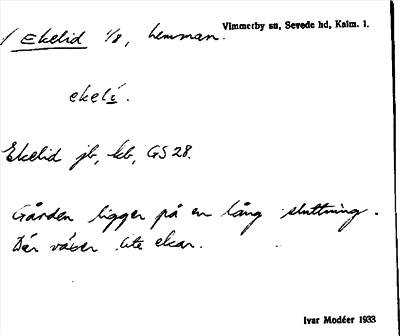 Vimmerby sn, Sevede hd, Kalm. l.
/ Ekelid 1/8, hemman.
ekelí.
Ekelid jb, kb, GS 28.
Gården ligger på en lång sluttning.
Där växer lite ekar.
Ivar Modéer 1933